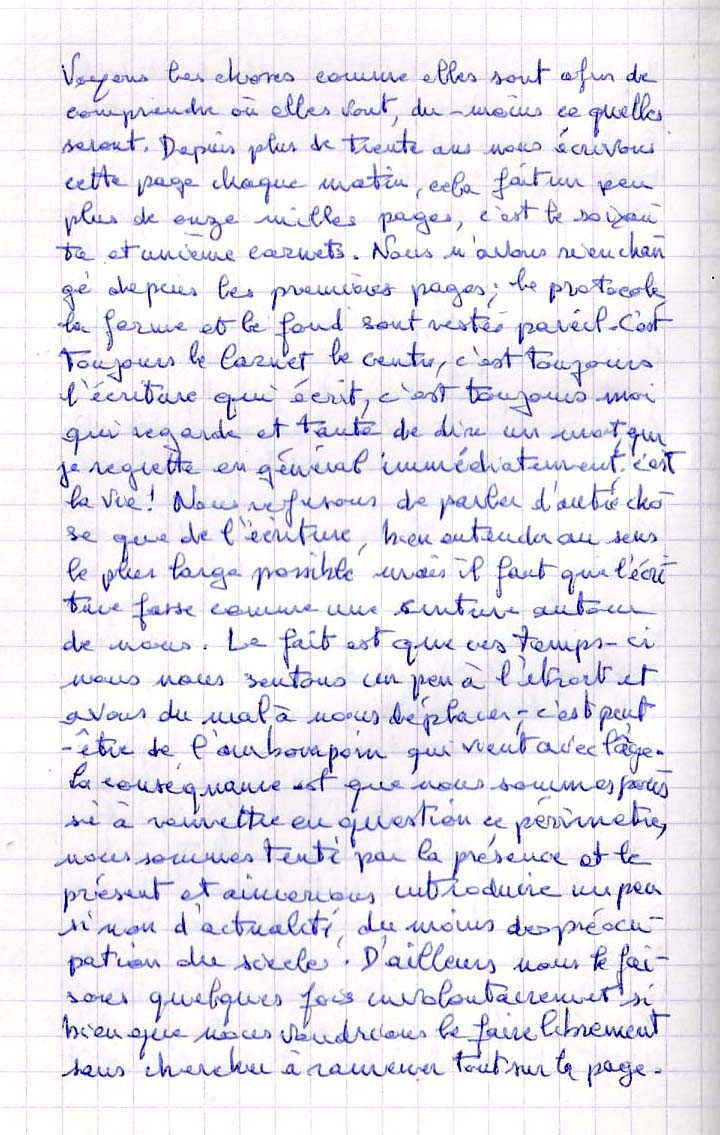 Voyons les choses comme elles sont afin de
comprendre où elles vont, du-moins ce quelles
seront. Depuis plus de trente ans nous écrivons
cette page chaque matin, cela fait un peu
plus de onze milles pages, c'est le soixan
te et unième carnets. Nous n'avons rien chan
gé depuis les premières pages; le protocole,
la forme et le fond sont restés pareil. C'est
toujours le carnet le centre, c'est toujours
l'écriture qui écrit, c'est toujours moi
qui regarde et tente de dire un mot, que
je regrette en général immédiatement, c'est
la vie! Nous refusons de parler d'autre cho
se que de l'écriture, bien entendu au sens
le plus large possible mais il faut que l'écri
ture fasse comme une cinture autour
de nous. Le fait est que ces temps-ci
nous nous sentons un peu à l'étroit et
avons du mal à nous déplacer, c'est peut
-être de l'embonpoin qui vient avec l'âge.
La conséquance est que nous sommes pous
sé à remettre en question ce périmetre,
nous sommes tenté par la présence et le
présent et aimerions introduire un peu
si non d'actualité, du moins des préocu-
pation du siècle. D'ailleurs nous le fai-
sons quelques fois involontairement si
bien que nous voudrions le faire librement
sans chercher à ramener tout sur la page.